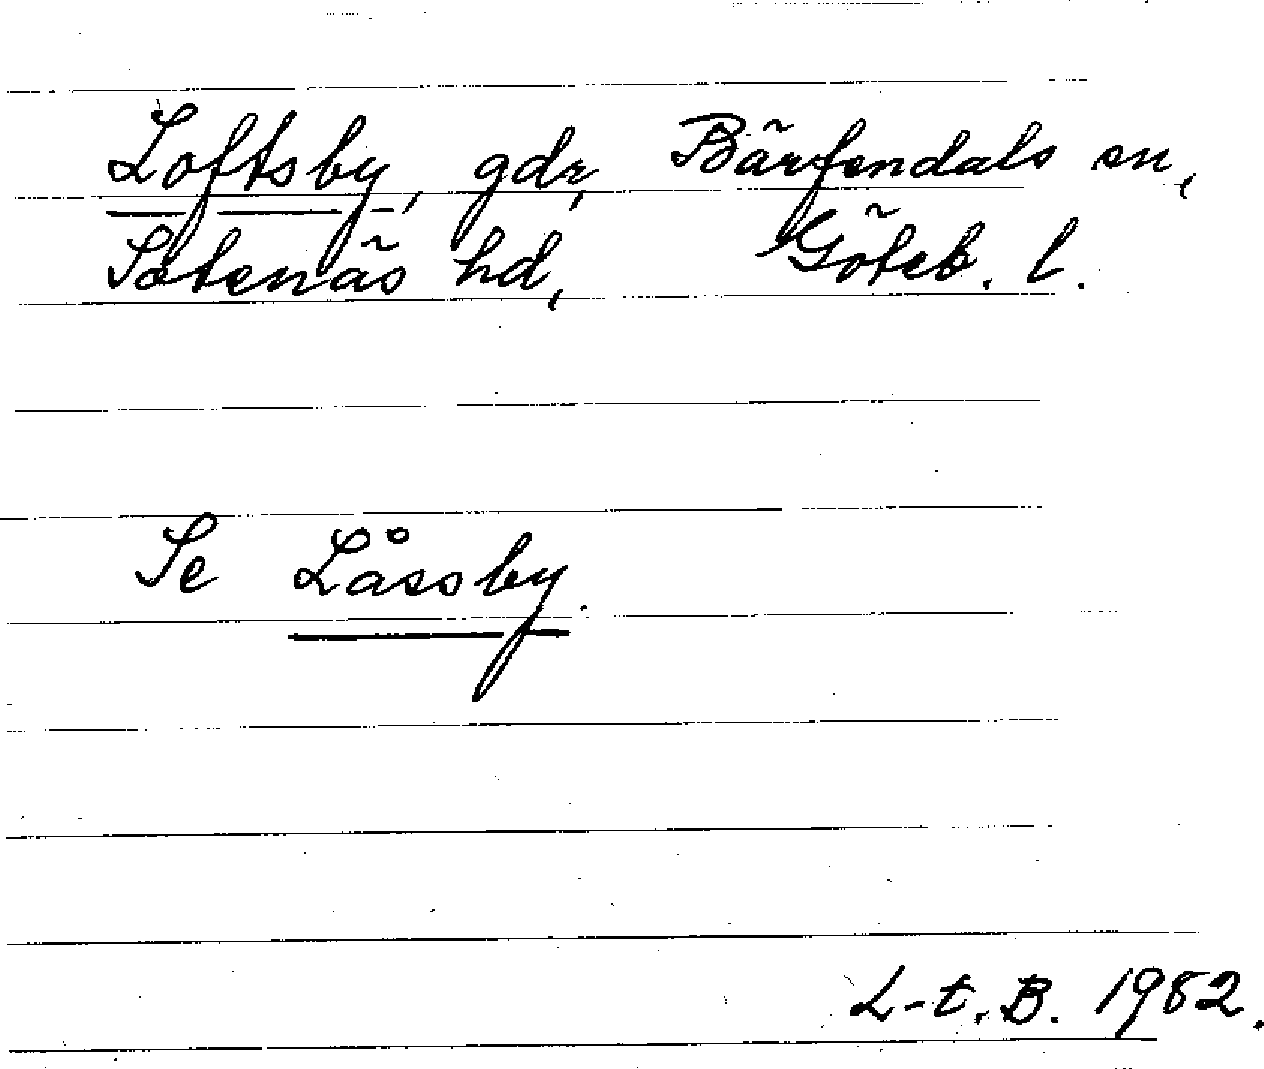 Loftsby, gdr, Bärfendals sn,
Sotenäs hd, Göteb. l.
Se Låssby.
L-t. B. 1982.